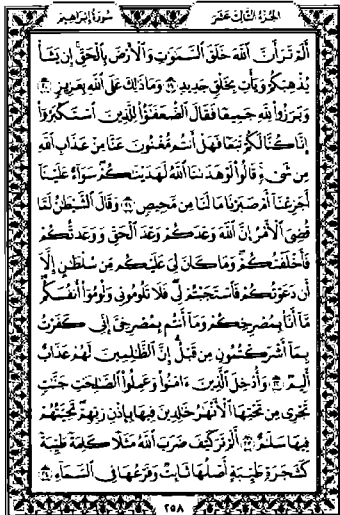 الجزء الثالث عشر سورة إبراهيم
أَلَمْ تَرَ أَنَّ ٱللَّهَ خَلَقَ ٱلسَّمَٰوَٰتِ وَٱلْأَرْضَ بِٱلْحَقِّ إِن يَشَأْ
يُذْهِبْكُمْ وَيَأْتِ بِخَلْقٍ جَدِيدٍ ١٩ وَمَا ذَٰلِكَ عَلَى ٱللَّهِ بِعَزِيزٍ ٢٠
وَبَرَزُوا۟ لِلَّهِ جَمِيعًا فَقَالَ ٱلضُّعَفَٰٓؤُا۟ لِلَّذِينَ ٱسْتَكْبَرُوٓا۟
إِنَّا كُنَّا لَكُمْ تَبَعًا فَهَلْ أَنتُم مُّغْنُونَ عَنَّا مِنْ عَذَابِ ٱللَّهِ
مِن شَىْءٍ قَالُوا۟ لَوْ هَدَىٰنَا ٱللَّهُ لَهَدَيْنَٰكُمْ سَوَآءٌ عَلَيْنَآ
أَجَزِعْنَآ أَمْ صَبَرْنَا مَا لَنَا مِن مَّحِيصٍ ٢١ وَقَالَ ٱلشَّيْطَٰنُ لَمَّا
قُضِىَ ٱلْأَمْرُ إِنَّ ٱللَّهَ وَعَدَكُمْ وَعْدَ ٱلْحَقِّ وَوَعَدتُّكُمْ
فَأَخْلَفْتُكُمْ وَمَا كَانَ لِىَ عَلَيْكُم مِّن سُلْطَٰنٍ إِلَّآ
أَن دَعَوْتُكُمْ فَٱسْتَجَبْتُمْ لِى فَلَا تَلُومُونِى وَلُومُوٓا۟ أَنفُسَكُم
مَّآ أَنَا۠ بِمُصْرِخِكُمْ وَمَآ أَنتُم بِمُصْرِخِىَّ إِنِّى كَفَرْتُ
بِمَآ أَشْرَكْتُمُونِ مِن قَبْلُ إِنَّ ٱلظَّٰلِمِينَ لَهُمْ عَذَابٌ
أَلِيمٌ ٢٢ وَأُدْخِلَ ٱلَّذِينَ ءَامَنُوا۟ وَعَمِلُوا۟ ٱلصَّٰلِحَٰتِ جَنَّٰتٍ
تَجْرِى مِن تَحْتِهَا ٱلْأَنْهَٰرُ خَٰلِدِينَ فِيهَا بِإِذْنِ رَبِّهِمْ تَحِيَّتُهُمْ
فِيهَا سَلَٰمٌ ٢٣ أَلَمْ تَرَ كَيْفَ ضَرَبَ ٱللَّهُ مَثَلًا كَلِمَةً طَيِّبَةً
كَشَجَرَةٍ طَيِّبَةٍ أَصْلُهَا ثَابِتٌ وَفَرْعُهَا فِى ٱلسَّمَآءِ ٢٤
٢٥٨